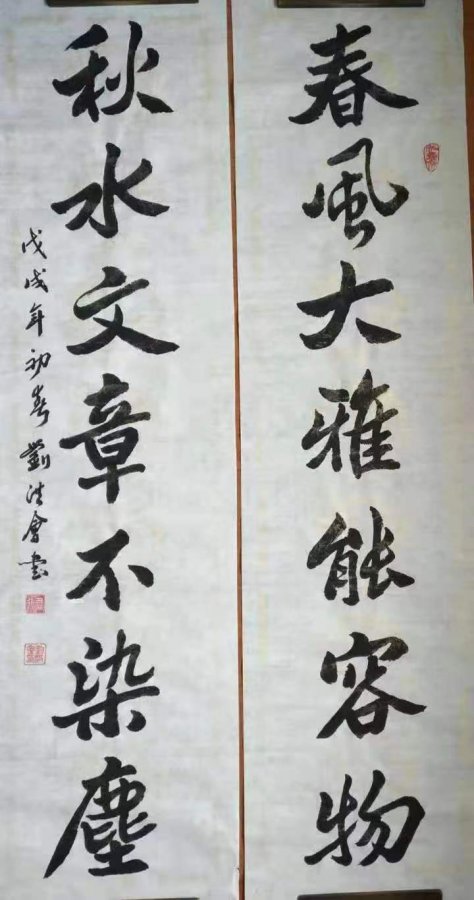 春風大雅能容物
秋水文章不染塵
戊戌年初春劉洪會書